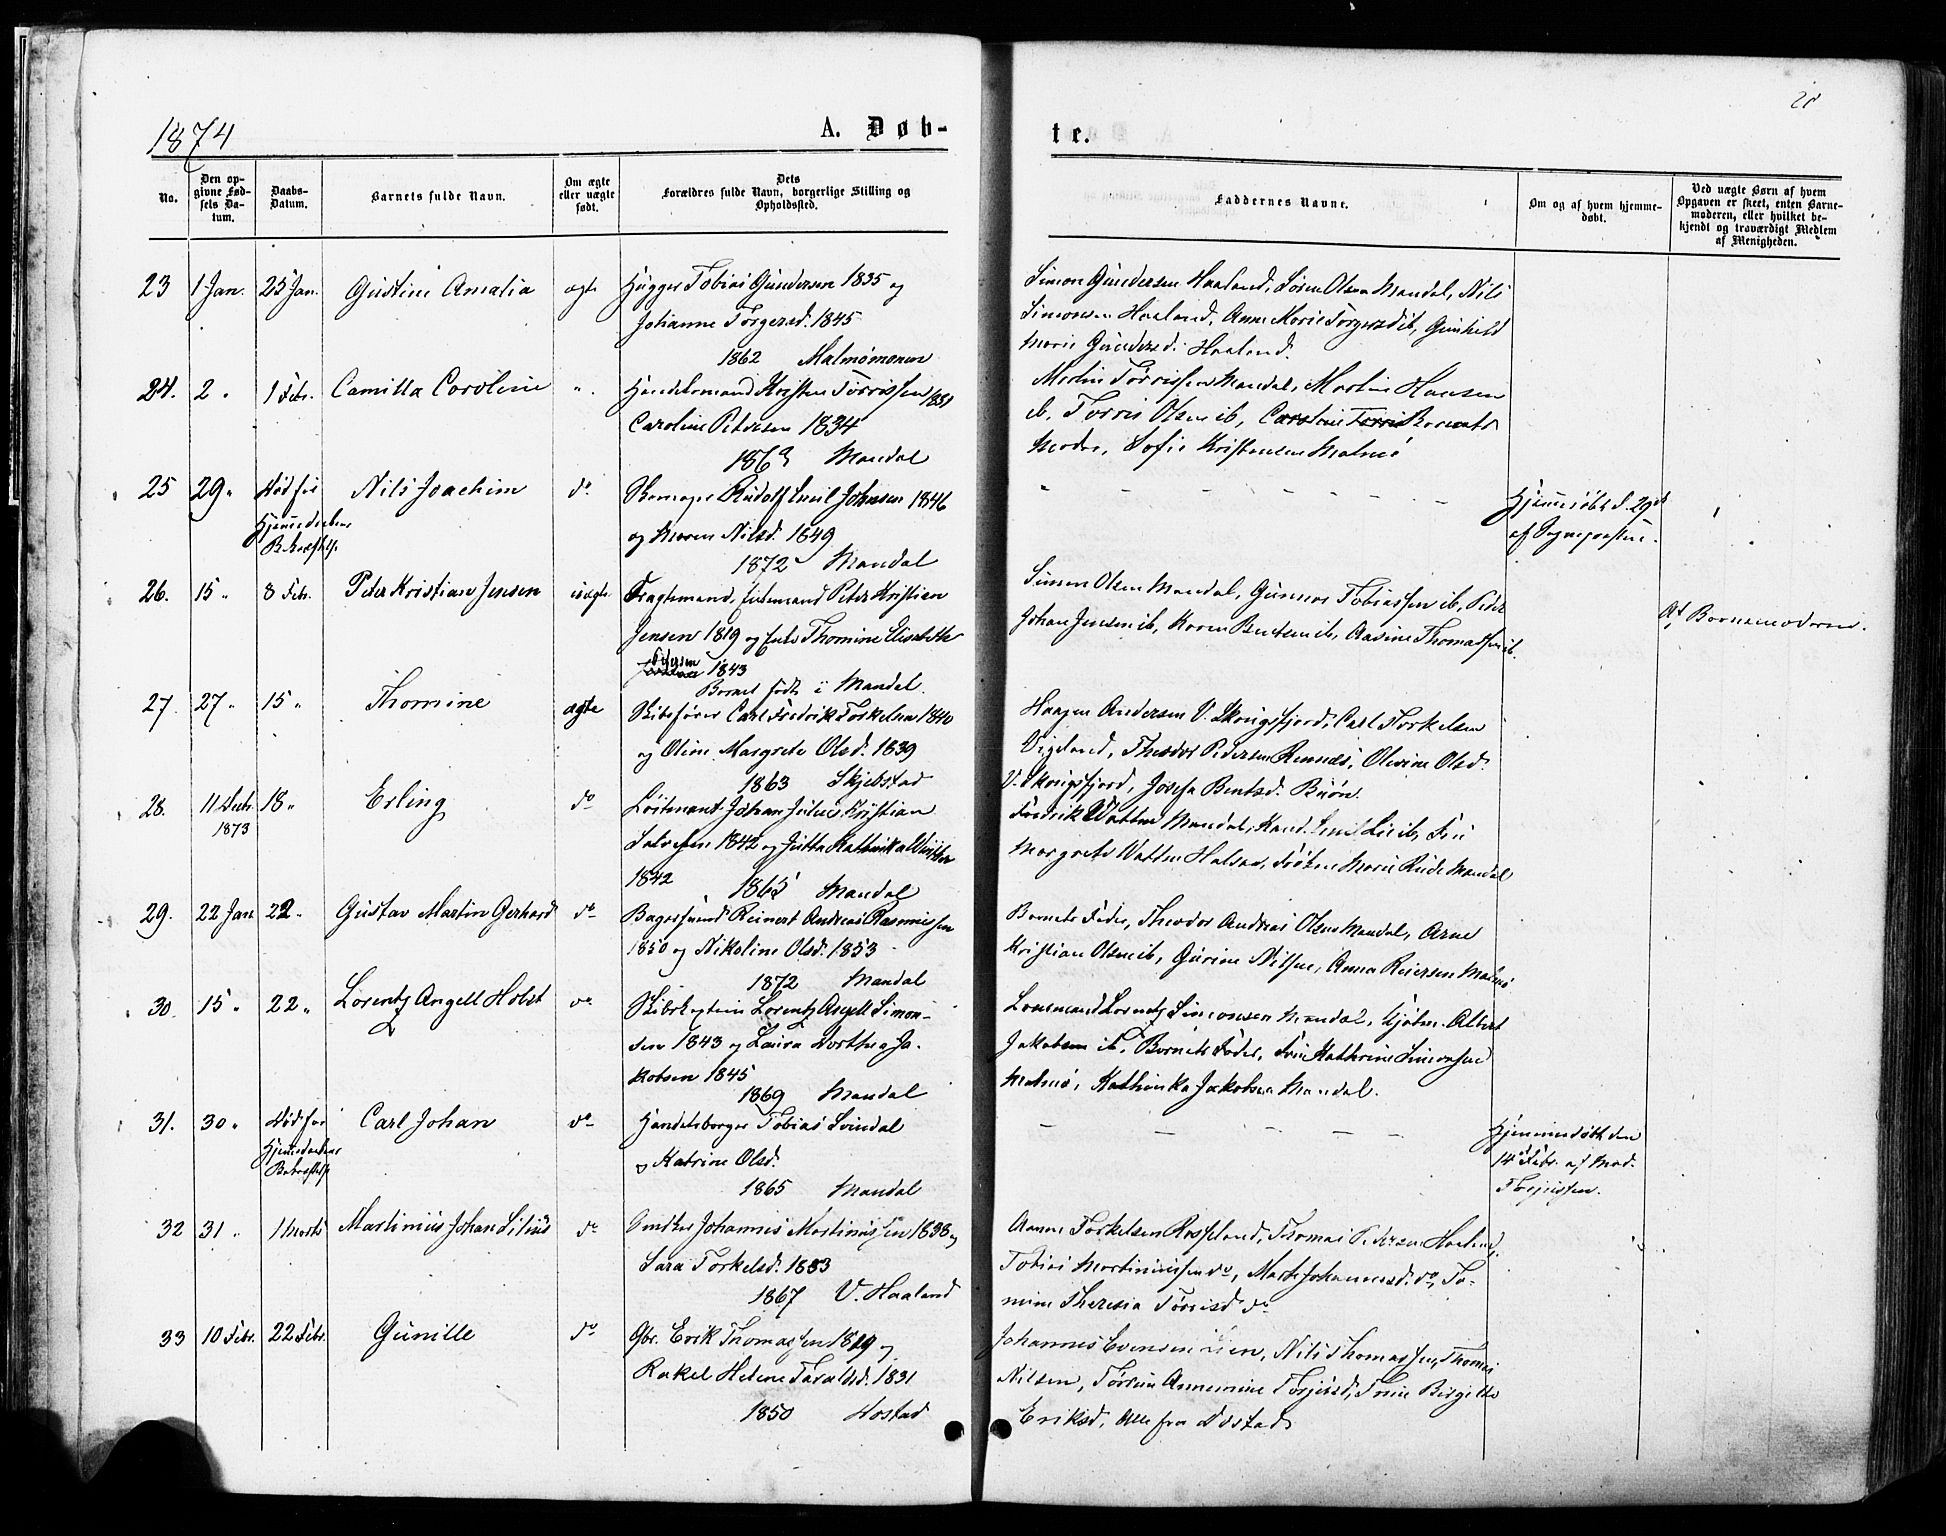 28
1874
A. Døb-
te.
No.
Den op-
givne Fød-
sels Da-
tum.
Daabs-
Datum.
Barnets fulde Navn.
Om ægte
eller uægte
født.
Dets
Forældres fulde Navn, borgerlige Stilling og
Opholdssted.
Faddernes Navne.
Om og af hvem hjemme-
døbt.
Ved uægte Børn af hvem
Opgaven er skeet, enten Barne-
moderen, eller hvilket be-
kjendt og troværdigt Medlem
af Menigheden.
23 1 Jan. 25 Jan. Gustine Amalia ægte Hugger Tobias Gundersen 1835 og
Johanne Torgersd. 1845
1862 Malmømoren
Simon Gundersen Haaland, Søren Olsen Mandal, Nils
Simonsen Haaland, Anne Marie Torgersd. ib, Gunhild
Marie Gundersd. Haaland.
24. 2 " 1 Febr. Camilla Caroline " Handelsmand Kristen Tørrissen 1831
Caroline Petersen 1834
1863 Mandal
Tørrissen Mandal, Martin Hansen
ib, Tørris Olsen ib, Barnets
Moder, Sofie Kristensen Malmø
25 29 " Død før
Hjemmedaabens
Bekræftelse
Nils Joachim do Skomager Rudolf Emil Johnsen 1846
og Maren Nilsd. 1849
1872 Mandal
Hjemmedøbt d. 29de
af Sognepresten.
26. 15 " 8 Febr. Peter Kristian Jensen uægte Fragtemand, Enkemand Peter Kristian
Jensen 1819 og Enke Thomine Elisabeth
Petersen 1843
Barnet født i Mandal.
Simon Olsen Mandal, Gunnar Tobiassen ib, Peder
Johan Jensen ib, Karen Bentsen ib, Aasine Thomassen ib.
Af Barnemoderen.
27. 27 " 15 " Thomine ægte Skibsfører Carl Fredrik Torkelsen 1840
og Oline Margrete Olsd. 1839
1863 Skjebstad
Haagen Andersen V. Skougsfjord, Carl Torkelsen
Vigeland, Theodor Pedersen Rennes, Olevine Olsd.
V. Skougsfjord, Josefa Bentsd. Buøn.
28. 11 Decbr
1873
18 " Erling do Loitenant Johan Julius Kristian
Salvesen 1842 og Jutta Kathinka
1842 1865 Mandal
Fredrik Watten Mandal, Kand. Emil Lie ib, Fru
Margrete Watten Halsaa, Frøken Marie Rude Mandal
29. 22 Jan. 22 " Gustav Martin Gerhard do Bagersvend Reinert Andreas Rasmussen
1850 og Nikoline Olsd. 1853
1872 Mandal
Barnets Fader, Theodor Andreas Olsen Mandal, Arne
Kristian Olsen ib, Gurine Nilsen, Anna Reiersen Malmø
30. 15 " 22 " Lorentz Angell Holst do Skibskaptein Lorentz Angell Simon-
sen 1843 og Laura Dorthea Ja-
kobsen 1845
1869 Mandal
Lodsmand Lorentz Simonsen Mandal, Kjøbm. Albert
Jakobsen ib, Barnets Fader, Fru Kathrine Simonsen
Malmø, Kathinka Jakobsen Mandal.
31. 30 " Død før
Hjemmedaabens
Bekræftelse
Carl Johan do Handelsborger Tobias Svindal
og Katrine Olsd.
1865 Mandal
Hjemmedøbt den
14de Febr. af Mad.
Torjussen.
32 31 " 1 Marts Martinius Johan Silius do Snedker Johannes Martiniussen 1838 og
Sara Torkelsd. 1833
1867 V. Haaland
Aanen Torkelsen Rosseland, Thomas Pedersen Haaland,
Tobias Martiniussen do, Marte Johannesd. do, To-
mine Theresia Tørrisd. do
33 10 Febr. 22 Febr. Gunille do Gbr. Erik Thomassen 1819 og
Rakel Helene Taraldsd. 1831
1850 Dostad
Johannes Evensen, Nils Thomassen, Thomas
Nilsen, Annemine Torjusd, Trine Birgitte
Eriksd, Alle fra Dostad